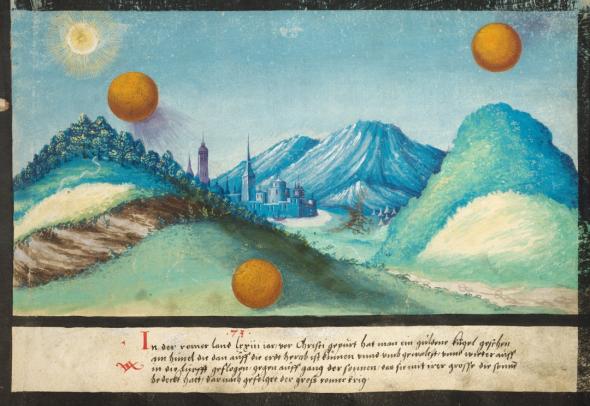 ·73·
In der romer land lxxiii iar vor Christi gepurt hat man ein guldene kugel gesehen
am himel die dan auff die erd herab ist kumen vnnd vmb gewalczt vnnd wieter auff
in die lufft geflogen gegen auff gang der sonnen das sie mit irer grosse die sonne
bedeckt hatt dar nach gefolget der gross romer krieg